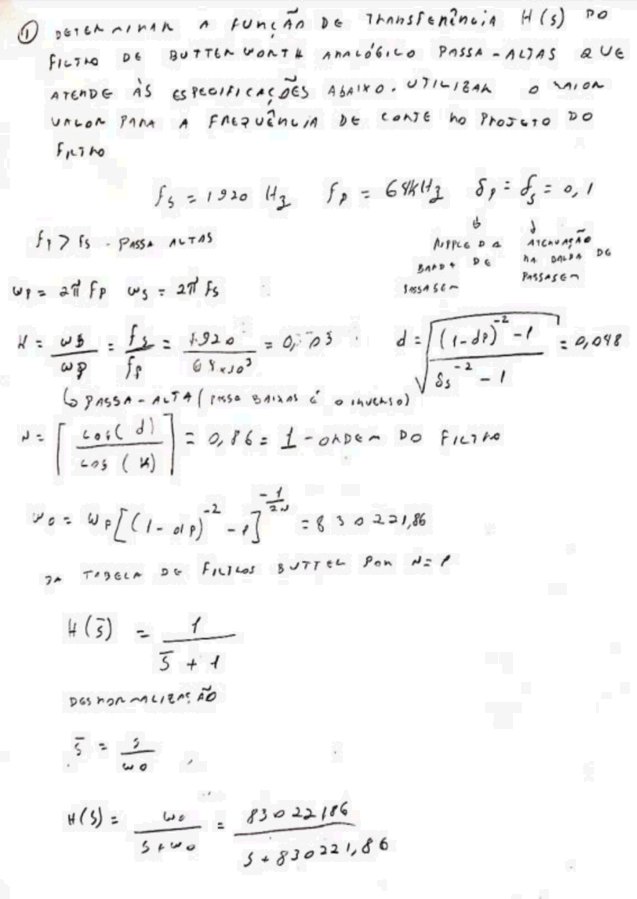 ① DETERMINAR A FUNÇÃO DE TRANSFERÊNCIA H(s) DO
FILTRO DE BUTTERWORTH ANALÓGICO PASSA-ALTAS QUE
ATENDE ÀS ESPECIFICAÇÕES ABAIXO. UTILIZAR O MAIOR
VALOR PARA A FREQUÊNCIA DE CORTE NO PROJETO DO
FILTRO
fs = 1920 Hz fp = 64kHz δp = δs = 0,1
fp > fs - PASSA ALTAS
RIPPLE DA BANDA DE PASSAGEM
ATENUAÇÃO NA BANDA DE PASSAGEM
ωp = 2π fp ωs = 2π fs
K = ωs/ωp = fs/fp = 1920/64x10³ = 0,03
d = √(((1-dp)⁻² - 1)/(δs⁻² - 1)) = 0,048
↳ PASSA-ALTA (PASSA BAIXAS É O INVERSO)
N = ⌈cos(d)/cos(K)⌉ = 0,86 = 1 - ORDEM DO FILTRO
ω0 = ωp[(1-dp)⁻² - 1]^(-1/2N) = 830221,86
DA TABELA DE FILTROS BUTTER POR N=1
H(s̄) = 1/(s̄ + 1)
DESNORMALIZAÇÃO
s̄ = s/ω0
H(s) = ω0/(s+ω0) = 83022186/(s+830221,86)